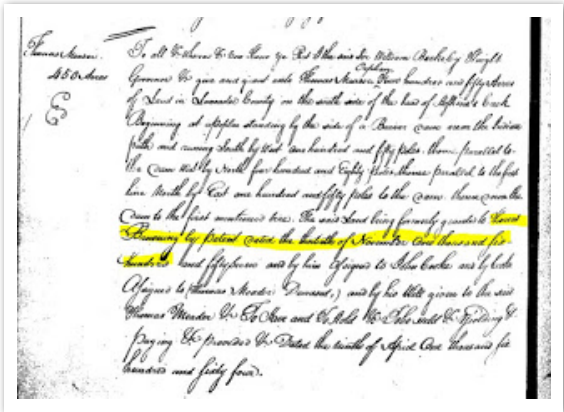 Thomas Meader
450 Acres
To all &c whereas &c Now Know ye that I the said Sr William Berkeley Knight
Governor &c give and grant unto Thomas Meader Orphan Four hundred and fifty Acres
of Land in County on the south side of the head of Creek
Beginning at standing by the side of a Beaver Dam near the Indian
path and running South by West one hundred and fifty poles thence parallel to
the Dam West by North four hundred and Eighty Poles thence parallel to the first
line North by East one hundred and fifty poles to the dam thence down the
Dam to the first mentioned tree. The said Land being formerly granted to
Browning by Patent dated the of November One thousand six
hundred and fifty seven and by him Assigned to John and by
Assigned to (Thomas Meader Deceased,) and by his Will given to the said
Thomas Meader &c To Have and To Hold &c To be held &c Yielding &
Paying &c provided &c Dated the ninth of April One thousand six
hundred and Sixty four.